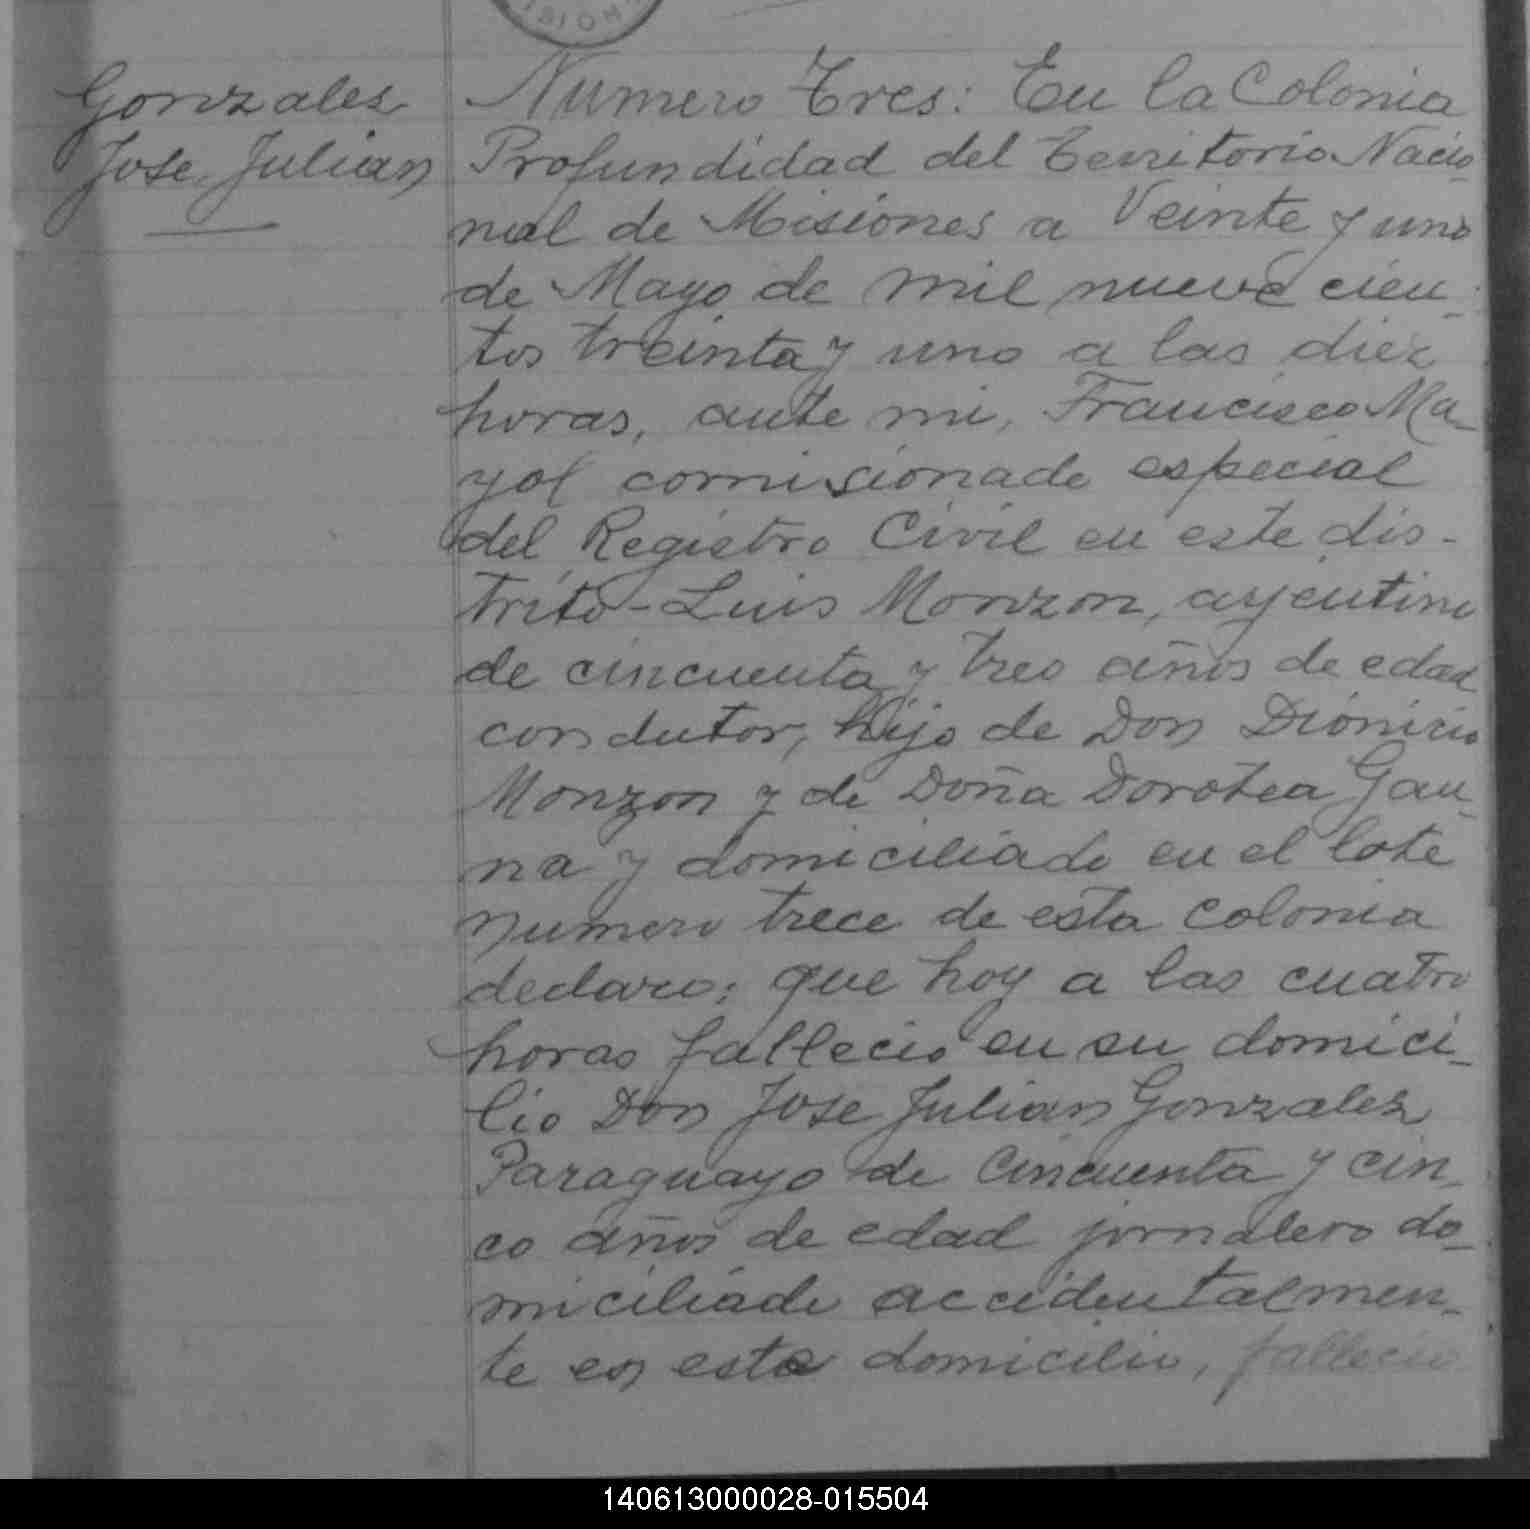 ISION
Gonzales
Jose Julian
Numero Tres: En la Colonia
Profundidad del Territorio Nacio
nal de Misiones a Veinte y uno
de Mayo de mil nueve cien-
tos treinta y uno a las diez
horas, ante mi, Francisco Ma-
yol comisionado especial
del Registro Civil en este dis-
trito - Luis Monzon, arjentino
de cincuenta y tres años de edad
condutor, hijo de Don Dionicio
Monzon y de Doña Dorotea Gau-
na y domiciliado en el lote
numero trece de esta colonia
declaro: que hoy a las cuatro
horas fallecio en su domici-
lio Don Jose Julian Gonzales
Paraguayo de Cincuenta y cin-
co años de edad jornalero do-
miciliado accidentalmen-
te en este domicilio, fallecio
140613000028-015504